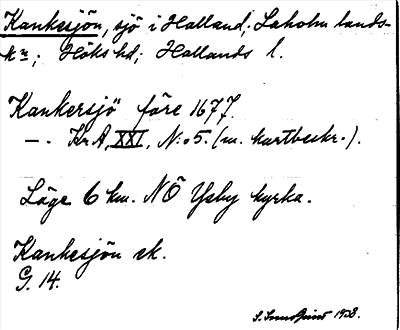 Kankesjön, sjö i Halland; Laholm lands-
kn; Höks hd; Hallands l.
Kankersjö före 1677.
—. Kr A, XXI, N:o 5. (m. kartbeskr.).
Läge 6 km. NÖ Ysby kyrka.
Kankesjön ek.
G. 14.
S. 1928.